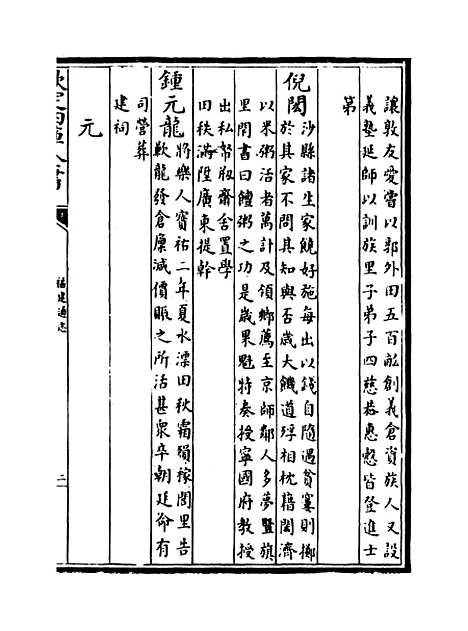 讓敦友愛嘗以郭外田五百畝創義倉資族人又設
義塾延師以訓族里子弟子四慈若惠慤皆登進士
第
倪閎沙縣諸生家饒好施每出以錢自隨遇貧窶則擲
於其家不問其知與否歲大饑道殍相枕藉閎濟
以米粥活者萬計及領鄉薦至京師鄰人多夢豎旗
里閈書曰饘粥之功是歲果魁特奏授寧國府教授
出私帑敞齋舍置學
田秩滿陞廣東提幹
鍾元龍將樂人寳祐二年夏水溧田秋霜殞稼閭里告
歉龍發倉廩減價賑之所活甚衆卒朝廷命有
司營葬
建祠
元
福建通志
二